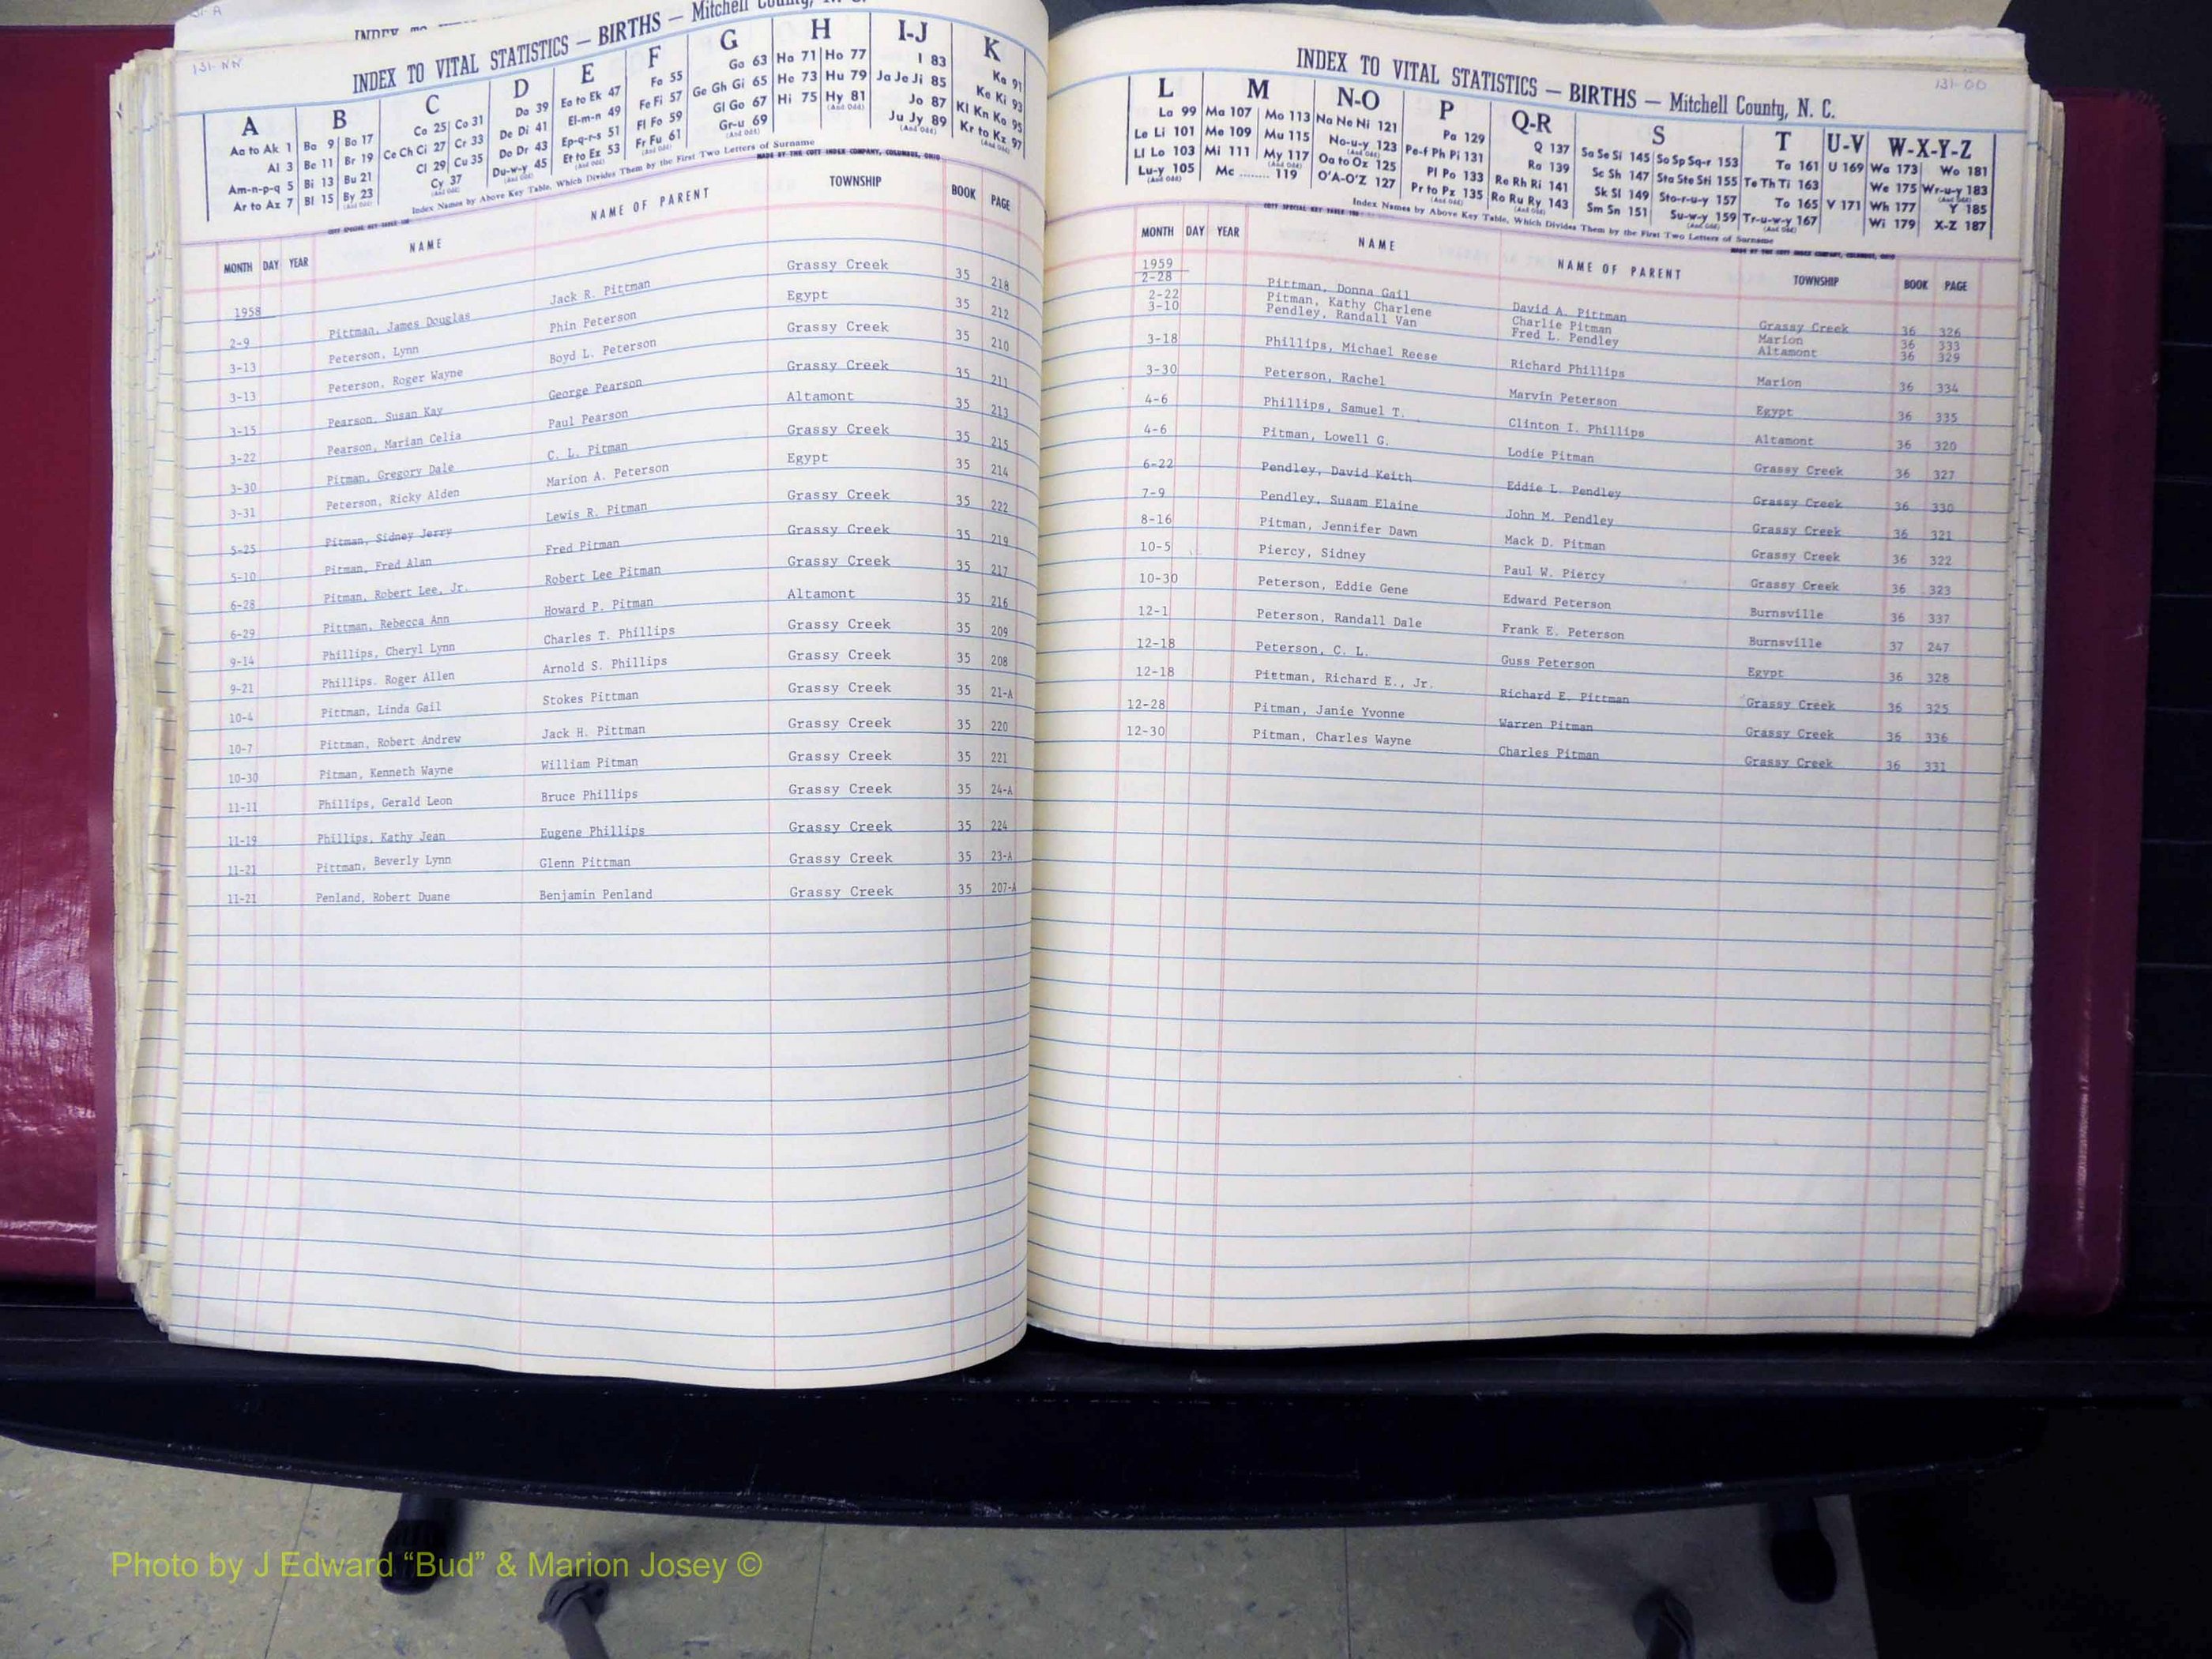 131-NN
INDEX TO VITAL STATISTICS — BIRTHS — Mitchell County, N. C.
A B C D E F G H I-J K
Aa to Ak 1 Ba 9 Bo 17 Ca 25 Co 31 Da 39 Ea to Ek 47 Fa 55 Ga 63 Ha 71 Ho 77 I 83 Ka 91
Al 3 Be 11 Br 19 Ce Ch Ci 27 Cr 33 De Di 41 El-m-n 49 Fe Fi 57 Ge Gh Gi 65 He 73 Hu 79 Ja Je Ji 85 Ke Ki 93
Am-n-p-q 5 Bi 13 Bu 21 Cl 29 Cu 35 Do Dr 43 Ep-q-r-s 51 Fl Fo 59 Gl Go 67 Hi 75 Hy 81 Jo 87 Kl Kn Ko 95
Ar to Az 7 Bl 15 By 23 Cy 37 Du-w-y 45 Et to Ez 53 Fr Fu 61 Gr-u 69 Ju Jy 89 Kr to Kz 97
Index Names by Above Key Table, Which Divides Them by the First Two Letters of Surname
MADE BY THE COTT INDEX COMPANY, COLUMBUS, OHIO
MONTH DAY YEAR NAME NAME OF PARENT TOWNSHIP BOOK PAGE
1958
2-9 Pittman, James Douglas Jack R. Pittman Grassy Creek 35 218
3-13 Peterson, Lynn Phin Peterson Egypt 35 212
3-13 Peterson, Roger Wayne Boyd L. Peterson Grassy Creek 35 210
3-15 Pearson, Susan Kay George Pearson Grassy Creek 35 211
3-22 Pearson, Marian Celia Paul Pearson Altamont 35 213
3-30 Pitman, Gregory Dale C. L. Pitman Grassy Creek 35 215
3-31 Peterson, Ricky Alden Marion A. Peterson Egypt 35 214
5-25 Pitman, Sidney Jerry Lewis R. Pitman Grassy Creek 35 222
5-10 Pitman, Fred Alan Fred Pitman Grassy Creek 35 219
6-28 Pitman, Robert Lee, Jr. Robert Lee Pitman Grassy Creek 35 217
6-29 Pittman, Rebecca Ann Howard P. Pitman Altamont 35 216
9-14 Phillips, Cheryl Lynn Charles T. Phillips Grassy Creek 35 209
9-21 Phillips. Roger Allen Arnold S. Phillips Grassy Creek 35 208
10-4 Pittman, Linda Gail Stokes Pittman Grassy Creek 35 21-A
10-7 Pittman, Robert Andrew Jack H. Pittman Grassy Creek 35 220
10-30 Pitman, Kenneth Wayne William Pitman Grassy Creek 35 221
11-11 Phillips, Gerald Leon Bruce Phillips Grassy Creek 35 24-A
11-19 Phillips, Kathy Jean Eugene Phillips Grassy Creek 35 224
11-21 Pittman, Beverly Lynn Glenn Pittman Grassy Creek 35 23-A
11-21 Penland, Robert Duane Benjamin Penland Grassy Creek 35 207-A
131-OO
INDEX TO VITAL STATISTICS — BIRTHS — Mitchell County, N. C.
L M N-O P Q-R S T U-V W-X-Y-Z
La 99 Ma 107 Mo 113 Na Ne Ni 121 Pa 129 Q 137 Sa Se Si 145 So Sp Sq-r 153 Ta 161 U 169 Wa 173 Wo 181
Le Li 101 Me 109 Mu 115 No-u-y 123 Pe-f Ph Pi 131 Ra 139 Sc Sh 147 Sta Ste Sti 155 Te Th Ti 163 We 175 Wr-u-y 183
Ll Lo 103 Mi 111 My 117 Oa to Oz 125 Pl Po 133 Re Rh Ri 141 Sk Sl 149 Sto-r-u-y 157 To 165 V 171 Wh 177 Y 185
Lu-y 105 Mc ........ 119 O'A-O'Z 127 Pr to Pz 135 Ro Ru Ry 143 Sm Sn 151 Su-w-y 159 Tr-u-w-y 167 Wi 179 X-Z 187
Index Names by Above Key Table, Which Divides Them by the First Two Letters of Surname
MADE BY THE COTT INDEX COMPANY, COLUMBUS, OHIO
MONTH DAY YEAR NAME NAME OF PARENT TOWNSHIP BOOK PAGE
1959
2-28 Pittman, Donna Gail David A. Pittman Grassy Creek 36 326
2-22 Pitman, Kathy Charlene Charlie Pitman Marion 36 333
3-10 Pendley, Randall Van Fred L. Pendley Altamont 36 329
3-18 Phillips, Michael Reese Richard Phillips Marion 36 334
3-30 Peterson, Rachel Marvin Peterson Egypt 36 335
4-6 Phillips, Samuel T. Clinton I. Phillips Altamont 36 320
4-6 Pitman, Lowell G. Lodie Pitman Grassy Creek 36 327
6-22 Pendley, David Keith Eddie L. Pendley Grassy Creek 36 330
7-9 Pendley, Susam Elaine John M. Pendley Grassy Creek 36 321
8-16 Pitman, Jennifer Dawn Mack D. Pitman Grassy Creek 36 322
10-5 Piercy, Sidney Paul W. Piercy Grassy Creek 36 323
10-30 Peterson, Eddie Gene Edward Peterson Burnsville 36 337
12-1 Peterson, Randall Dale Frank E. Peterson Burnsville 37 247
12-18 Peterson, C. L. Guss Peterson Egypt 36 328
12-18 Pittman, Richard E., Jr. Richard E. Pittman Grassy Creek 36 325
12-28 Pitman, Janie Yvonne Warren Pitman Grassy Creek 36 336
12-30 Pitman, Charles Wayne Charles Pitman Grassy Creek 36 331
Photo by J Edward “Bud” & Marion Josey ©